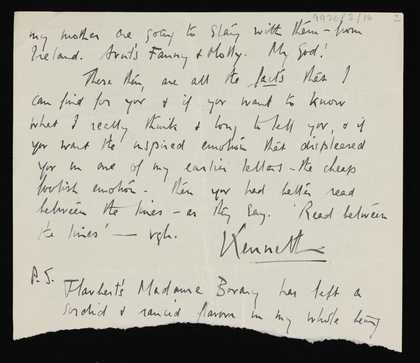 9920/2/16 2
my mother are going to stay with them – from
Ireland. Aunts Fanny & Molly. My God!
These then, are all the facts that I
can find for you & if you want to know
what I really think & long to tell you, & if
you want the inspired emotion that displeased
you in one of my earlier letters – the cheap
foolish emotion – then you had better read
between the lines – as they say. 'Read between
the lines' — ugh.
Kenneth
P.S.
Flaubert's Madame Bovary has left a
sordid & rancid flavour in my whole being